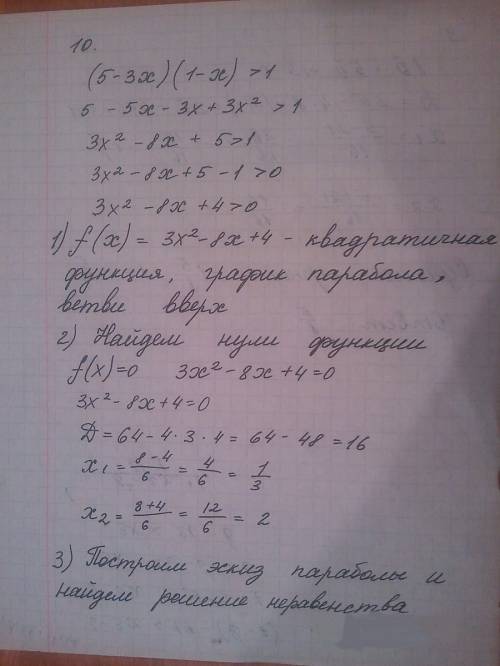 10.
(5-3x)(1-x) >1
5 - 5x - 3x + 3x² >1
3x² - 8x + 5>1
3x² - 8x + 5 - 1 >0
3x² - 8x + 4 >0
1) f(x) = 3x² - 8x + 4 - квадратичная
функция, график парабола,
ветви вверх
2) Найдем нули функции
f(x)=0 3x² - 8x + 4 = 0
3x² - 8x + 4 = 0
Д = 64 - 4·3·4 = 64 - 48 = 16
x₁ = (8-4)/6 = 4/6 = 1/3
x₂ = (8+4)/6 = 12/6 = 2
3) Построим эскиз параболы и
найдем решение неравенства